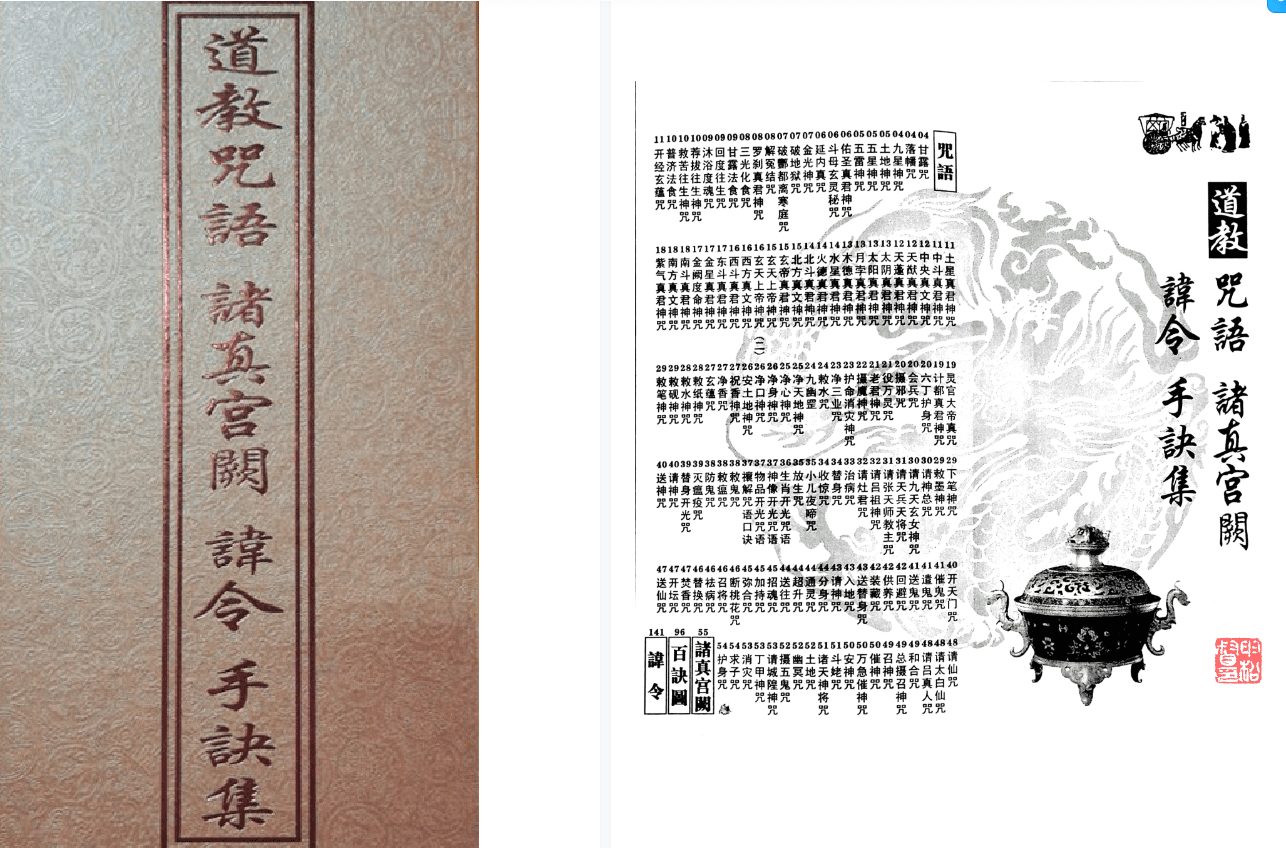 道教咒語 諸真宮闕 諱令 手訣集
道教
咒語 諸真宮闕
諱令 手訣集
咒語
04 甘露咒
04 落幡咒
04 九星神咒
05 土地神咒
05 五星神咒
05 五雷神咒
06 佑圣真君神咒
06 斗母玄灵秘咒
06 延内真咒
07 金光神咒
07 破地狱咒
07 破酆都离寒庭咒
08 解冤结咒
08 罗刹真君神咒
08 三光化食咒
09 甘露法食咒
09 回度往生咒
09 沐浴度魂咒
10 荐拔往生神咒
10 救苦往生神咒
10 普济法食咒
11 开经玄蕴咒
11 土星真君神咒
11 中斗真君神咒
12 中央真文神咒
12 天猷真君神咒
12 天蓬真君神咒
13 太阴真君神咒
13 太阳真君神咒
13 月孛真君神咒
13 木德真君神咒
14 水星真君神咒
14 火德真君神咒
14 北斗真君神咒
15 北方真文神咒
15 玄帝真君神咒
15 玄天上帝神咒
16 玄天上帝神咒(二)
16 西方真文神咒
16 西斗真君神咒
17 东斗真君神咒
17 金星真君神咒
17 金阙度命神咒
18 南斗真君神咒
18 南方真文神咒
18 紫气真君神咒
19 灵官大帝真咒
19 计都真君神咒
20 六丁护身咒
20 会兵咒
20 摄邪咒
21 役万灵咒
21 老君神咒
22 摄魔神咒
23 护命消灾神咒
23 净三业咒
24 敕水咒
24 九幽罡
25 净天地神咒
25 净心神咒
26 净身神咒
26 净口神咒
26 安土地神咒
27 祝香神咒
27 净香咒
27 玄蕴咒
28 敕纸神咒
28 敕水神咒
29 敕砚神咒
29 敕笔神咒
29 下笔神咒
29 敕墨神咒
30 请神总咒
30 请九天玄女神咒
31 请天兵天将咒
31 请张天师教主咒
32 请吕祖神咒
32 请灶君咒
33 治病咒
34 替身咒
34 收惊咒
35 小儿夜啼咒
35 放生咒
36 生肖开光咒语
37 神像开光咒语
37 物品开光咒语
37 禳解咒语口诀
38 敕鬼咒
38 敕瘟咒
38 防鬼咒
39 灭瘟疫咒
39 替身开光咒
40 请神咒
40 送神咒
40 开天门咒
41 催鬼咒
41 遣鬼咒
41 送鬼咒
42 回避咒
42 供养咒
42 装藏咒
43 送替身咒
43 入地咒
43 请神咒
44 分身咒
44 通灵咒
44 超升咒
44 送往咒
45 招魂咒
45 加持咒
45 弥合咒
46 断桃花咒
46 召将咒
46 祛病咒
46 替换咒
47 焚香咒
47 开坛咒
47 送仙咒
48 请仙咒
48 请太白仙咒
48 请吕真人咒
49 和合咒
49 总摄召神咒
49 召神咒
50 催神咒
50 万急催神咒
50 安神咒
51 斗姥咒
51 诸天神将咒
52 土地咒
52 幽冥咒
52 摄五鬼咒
53 请城隍神咒
53 丁甲神咒
53 消灾咒
54 求子咒
54 护身咒
55 諸真宮闕
96 百訣圖
141 諱令